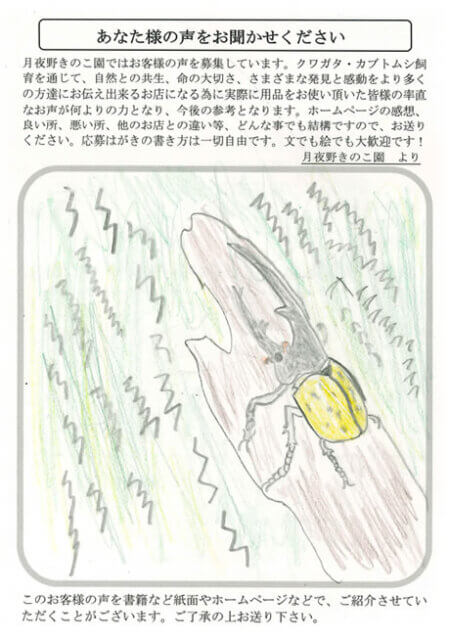 あなた様の声をお聞かせください
月夜野きのこ園ではお客様の声を募集しています。クワガタ・カブトムシ飼
育を通じて、自然との共生、命の大切さ、さまざまな発見と感動をより多く
の方達にお伝え出来るお店になる為に実際に用品をお使い頂いた皆様の率直
なお声が何よりの力となり、今後の参考となります。ホームページの感想、
良い所、悪い所、他のお店との違い等、どんな事でも結構ですので、お送り
ください。応募はがきの書き方は一切自由です。文でも絵でも大歓迎です！
月夜野きのこ園　より
このお客様の声を書籍など紙面やホームページなどで、ご紹介させてい
ただくことがございます。ご了承の上お送り下さい。